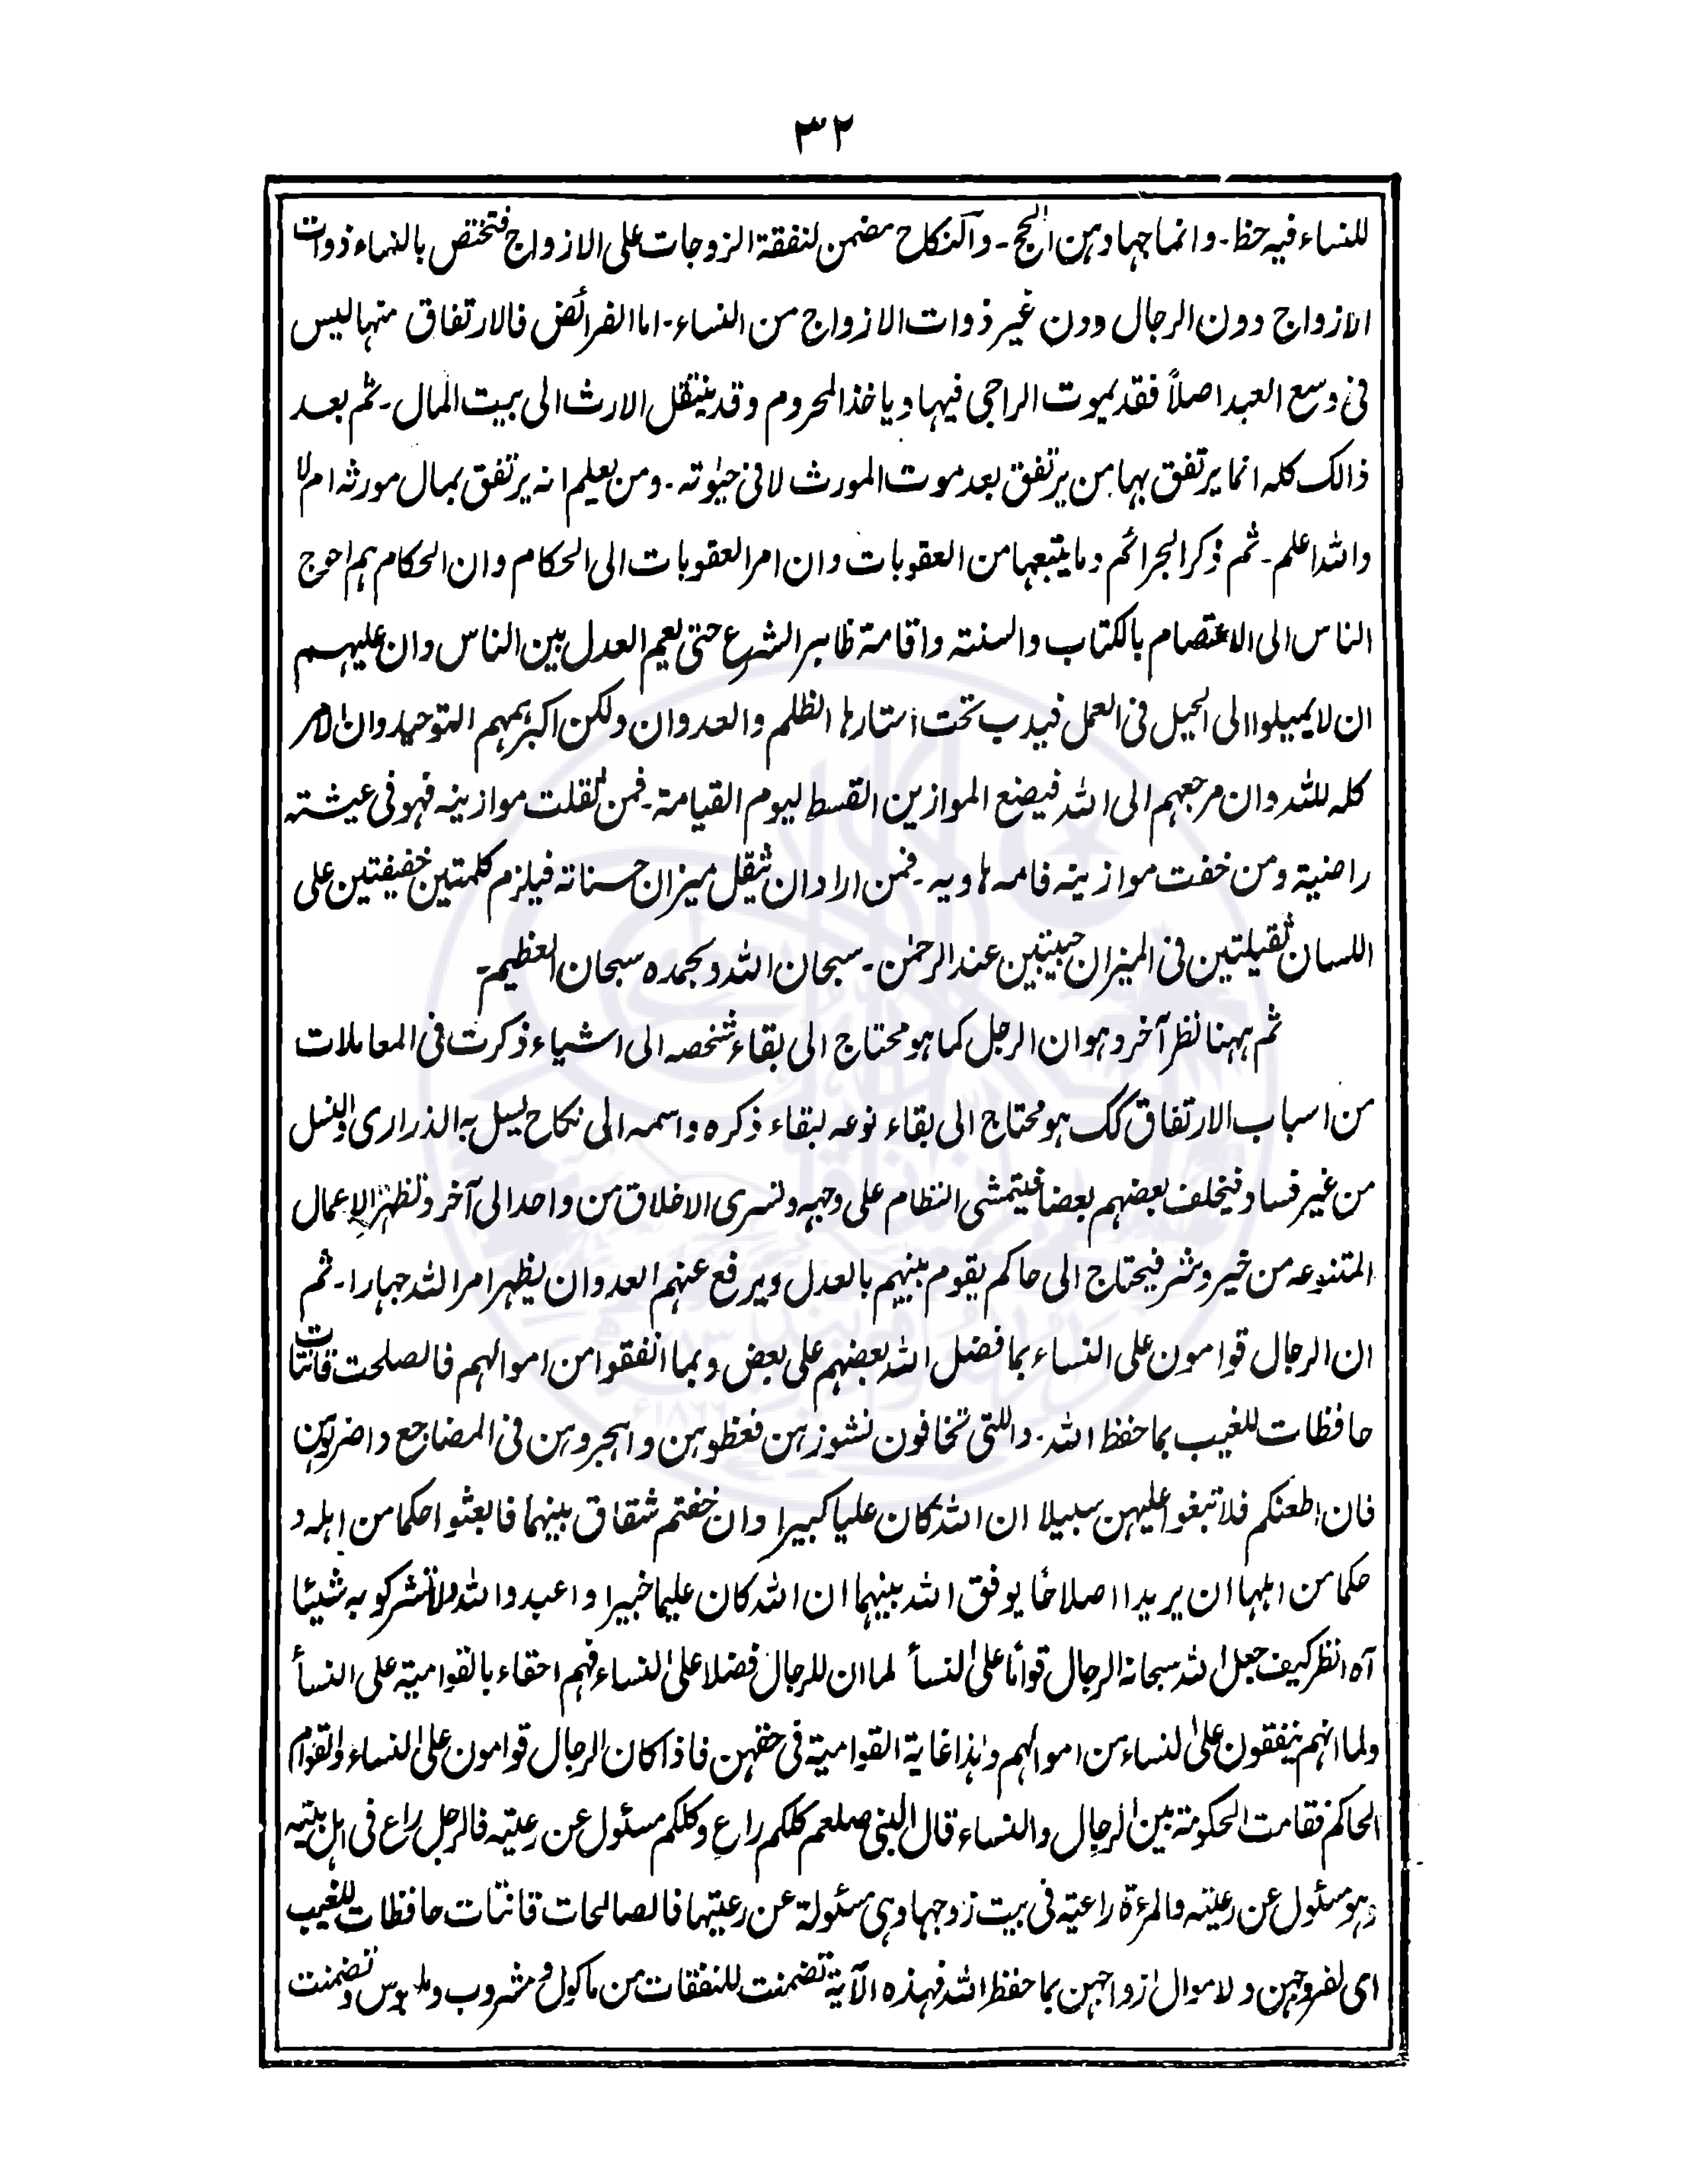 ٣٢
للنساء فيه حظ۔ وانما جهادهن الحج۔ والنكاح مضمن لنفقة الزوجات على الازواج فتختص بالنساء ذوات
الازواج دون الرجال ودون غير ذوات الازواج من النساء۔ اما الفرائض فالارتفاق منها ليس
فى وسع العبد اصلاً فقد يموت الراجى فيها وياخذ المحروم وقد ينتقل الارث الى بيت المال۔ ثم بعد
ذالك كله انما يرتفق بها من يرتفق بعد موت المورث لا فى حيٰوته۔ ومن يعلم انه يرتفق بمال مورثه ام لا
والله اعلم۔ ثم ذكر الجرائم وما يتبعها من العقوبات وان امر العقوبات الى الحكام وان الحكام هم احوج
الناس الى الاعتصام بالكتاب والسنته واقامة ظاهر الشرع حتى يعم العدل بين الناس وان عليهم
ان لا يميلوا الى الحيل فى العمل فيدب تحت استارها الظلم والعدوان ولكن اكبر همهم التوحيد وان الامر
كله لله وان مرجعهم الى الله فيضع الموازين القسط ليوم القيامة۔ فمن ثقلت موازينه فهو فى عيشته
راضية ومن خفت موازينه فامه هاويه۔ فمن اراد ان تثقل ميزان حسناته فيلزم كلمتين خفيفتين على
اللسان ثقيلتين فى الميزان حبيبتين عند الرحمٰن۔ سبحان الله وبحمده سبحان العظيم۔
ثم ههنا نظر آخر وهو ان الرجل كما هو محتاج الى بقاء شخصه الى اشياء ذكرت فى المعاملات
من اسباب الارتفاق كك هو محتاج الى بقاء نوعه لبقاء ذكره واسمه الى نكاح يسيل به الذرارى والنسل
من غير فساد فيخلف بعضهم بعضا فيتمشى النظام على وجهه ولتسرى الاخلاق من واحد الى آخر وتظهر الاعمال
المتنوعه من خير وشر فيحتاج الى حاكم يقوم بينهم بالعدل ويرفع عنهم العدوان ليظهر امر الله جهارا۔ ثم
ان الرجال قوامون على النساء بما فضل الله بعضهم على بعض وبما انفقوا من اموالهم فالصلحت قانتات
حافظات للغيب بما حفظ الله۔ واللتى تخافون نشوزهن فعظوهن واهجروهن فى المضاجع واضربوهن
فان اطعنكم فلا تبغوا عليهن سبيلا ان الله كان عليا كبيرا وان خفتم شقاق بينهما فابعثوا حكما من اهله و
حكما من اهلها ان يريدا اصلاحًا يوفق الله بينهما ان الله كان عليما خبيرا واعبدوا الله ولا تشركو به شيئا
آه انظر كيف جعل الله سبحانه الرجال قوامًا على النسأ لما ان للرجال فضلا على النساء فهم احقاء بالقوامية على النسأ
ولما انهم ينفقون على النساء من اموالهم وهذا غاية القوامية فى حقهن فاذا كان الرجال قوامون على النساء والقوام
الحاكم فقامت الحكومة بين الرجال والنساء قال النبى صلعم كلكم راعٍ وكلكم مسئول عن رعيته فالرجل راع فى اهل بيته
وهو مسئول عن رعيته والمرءة راعية فى بيت زوجها وهى مسئولة عن رعيتها فالصالحات قانتات حافظات للغيب
اى لفروجهن ولاموال ازواجهن بما حفظ الله فهذه الآية تضمنت للنفقات من ماكول ومشروب وملبوس وتضمنت